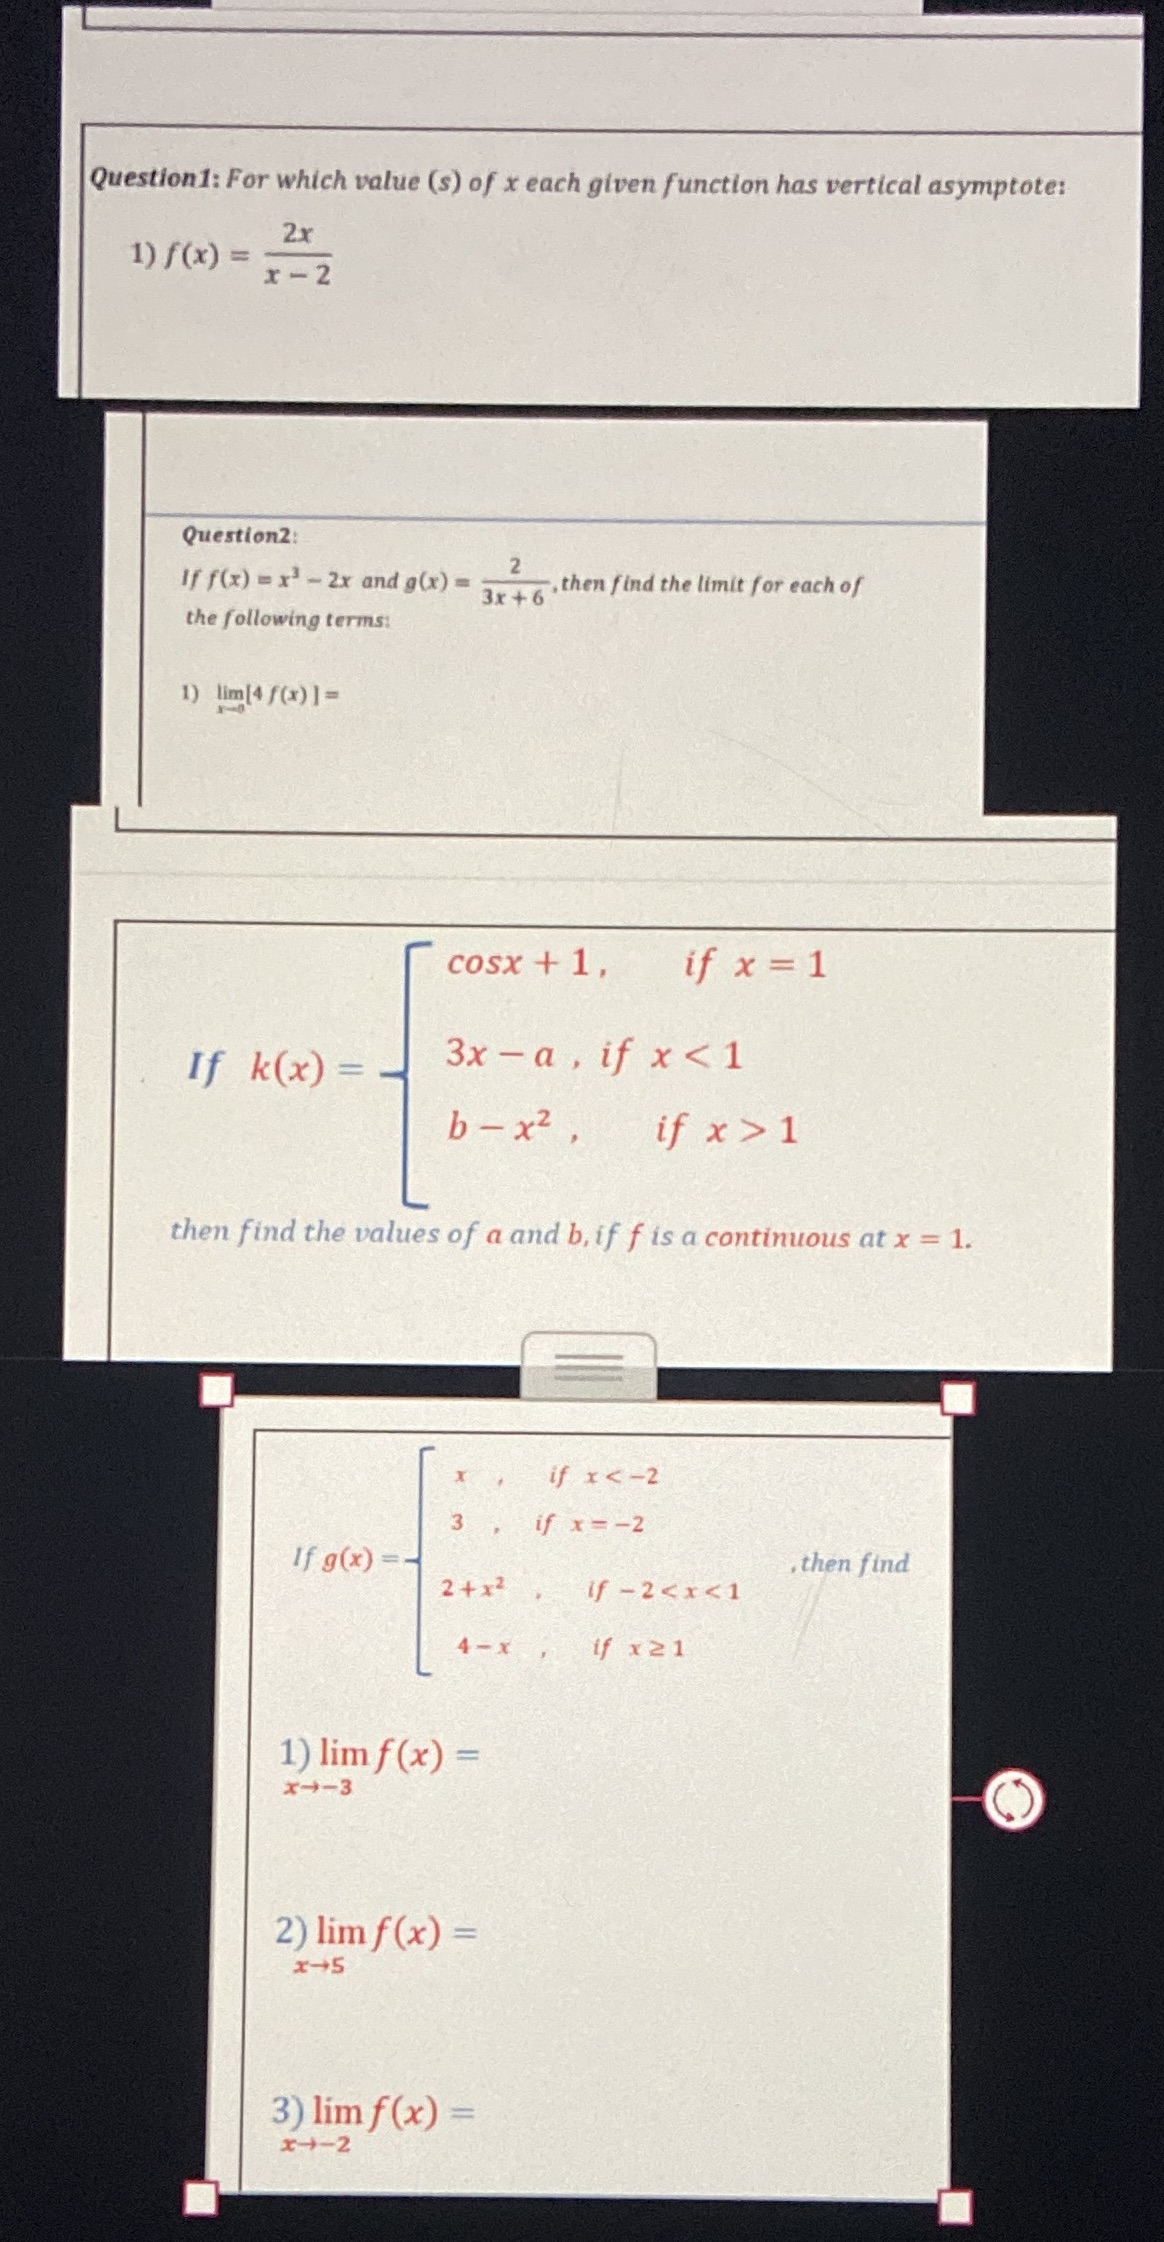 Question1: For which value (s) of x each given function has vertical asymptote:
1) f(x) = 2x / x − 2
Question2:
If f(x) = x³ − 2x and g(x) = 2 / 3x + 6 , then find the limit for each of
the following terms:
1) lim[4 f(x)] =
x→0
cosx + 1, if x = 1
If k(x) = 3x − a , if x < 1
b − x² , if x > 1
then find the values of a and b, if f is a continuous at x = 1.
x , if x < −2
3 , if x = −2
If g(x) = , then find
2 + x² , if − 2 < x < 1
4 − x , if x ≥ 1
1) lim f(x) =
x→−3
2) lim f(x) =
x→5
3) lim f(x) =
x→−2